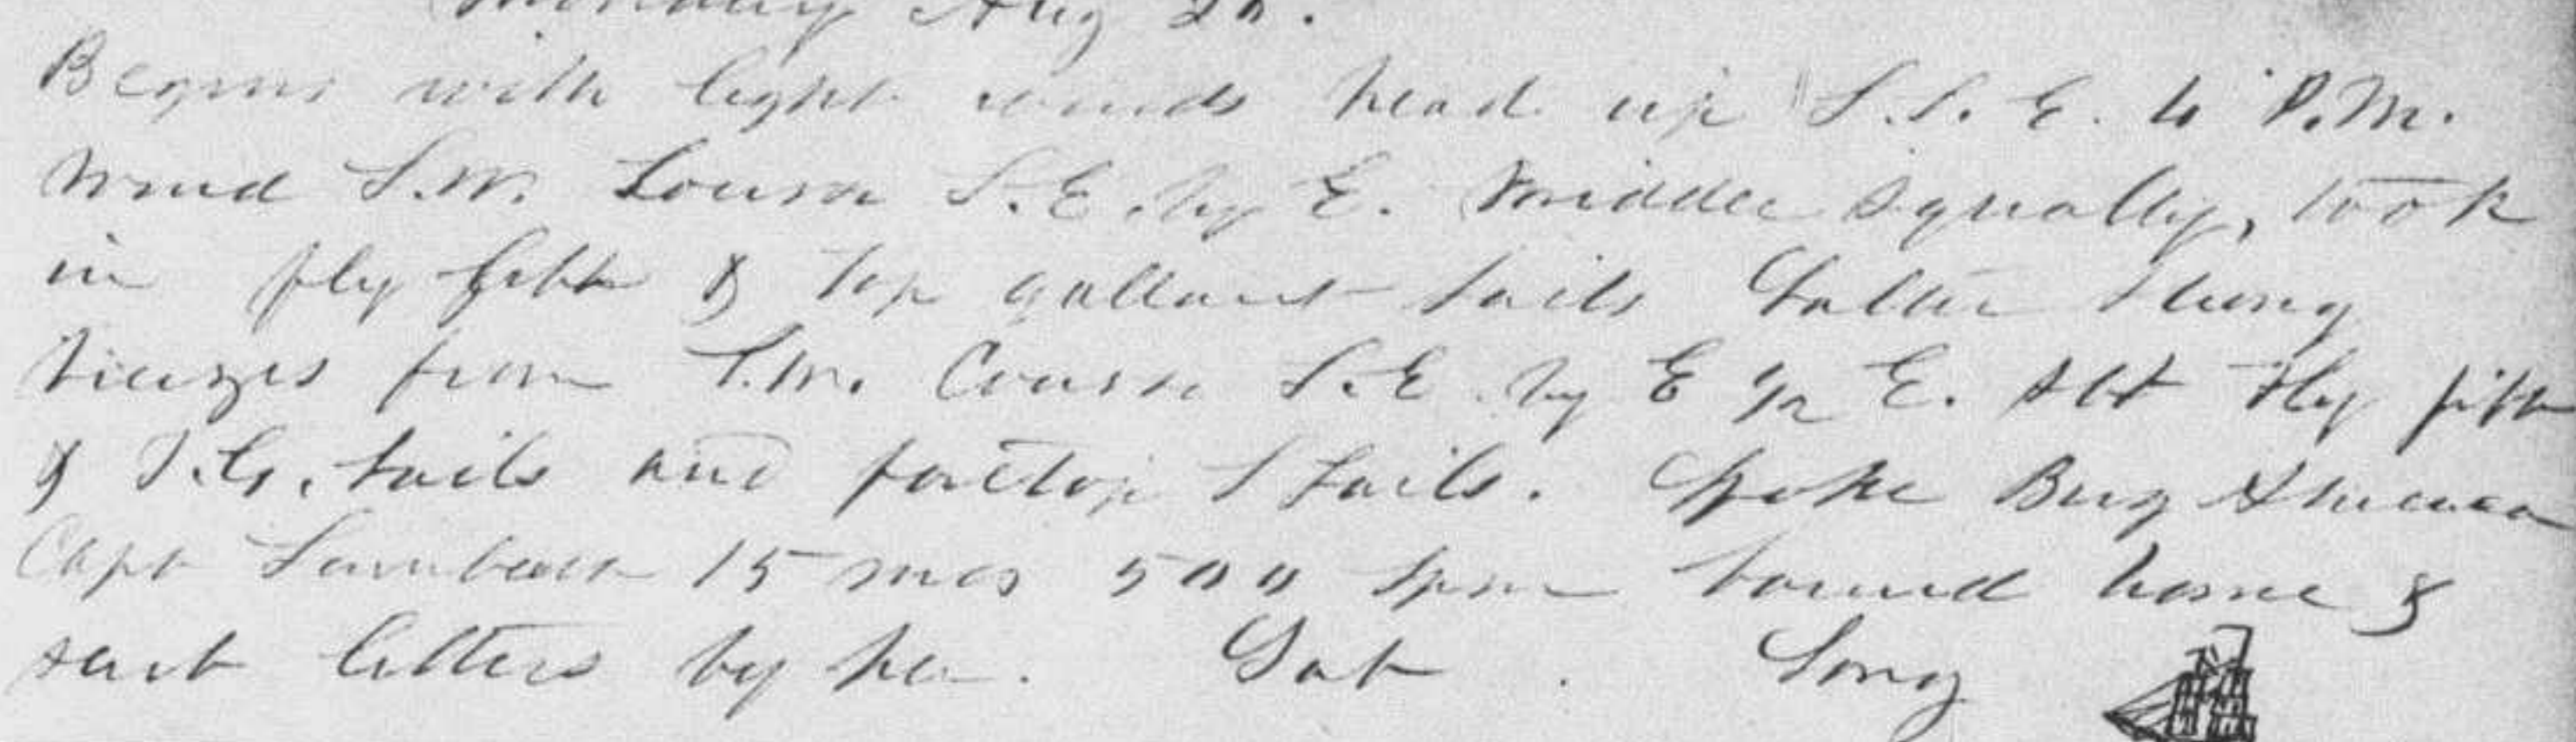 Monday Aug 20.
Begins with light winds head up S.S.E. 4 P.M.
Wind S.W. Course S.E. by E. Middle squally, took
in fly jibb & top gallant sails Latter strong
briezes from S.W. Course S.E by E 1/2 E. set fly jibb
& T.G. sails and foretop S Sails. Spoke Brig America
Capt 15 mos 500 spm bound home &
sent letters by her. Lat . Long